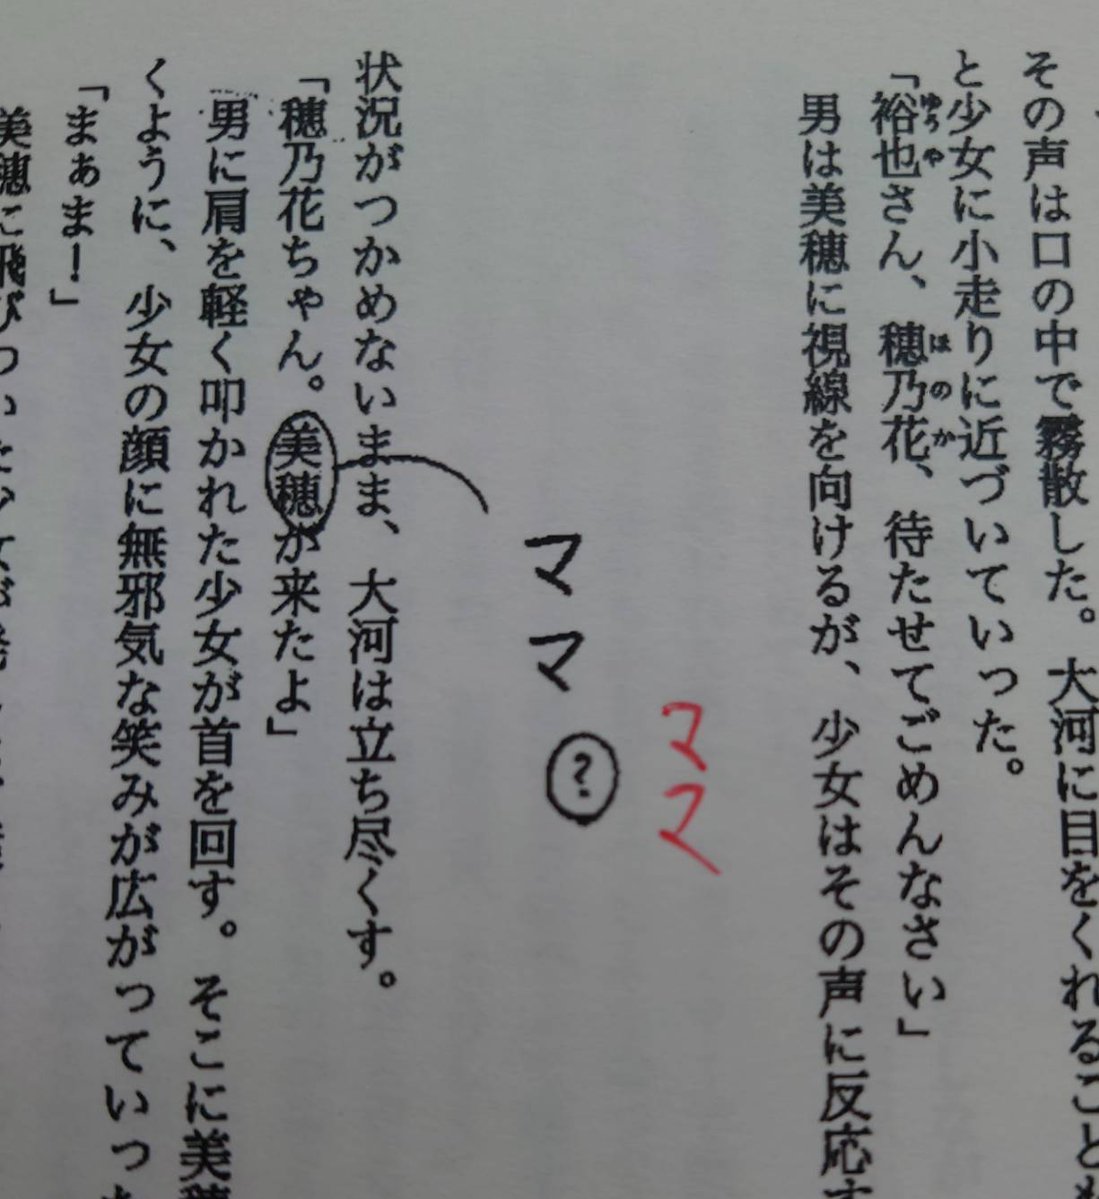 その声は口の中で霧散した。大河に目をくれること
と少女に小走りに近づいていった。
「裕也さん、穂乃花、待たせてごめんなさい」
ゆうや
ほのか
男は美穂に視線を向けるが、少女はその声に反応
ママ
ママ?
状況がつかめないまま、大河は立ち尽くす。
「穂乃花ちゃん。美穂が来たよ」
男に肩を軽く叩かれた少女が首を回す。そこに美穂
くように、少女の顔に無邪気な笑みが広がっていっ
「まぁま!」
美穂に飛びついた少女が